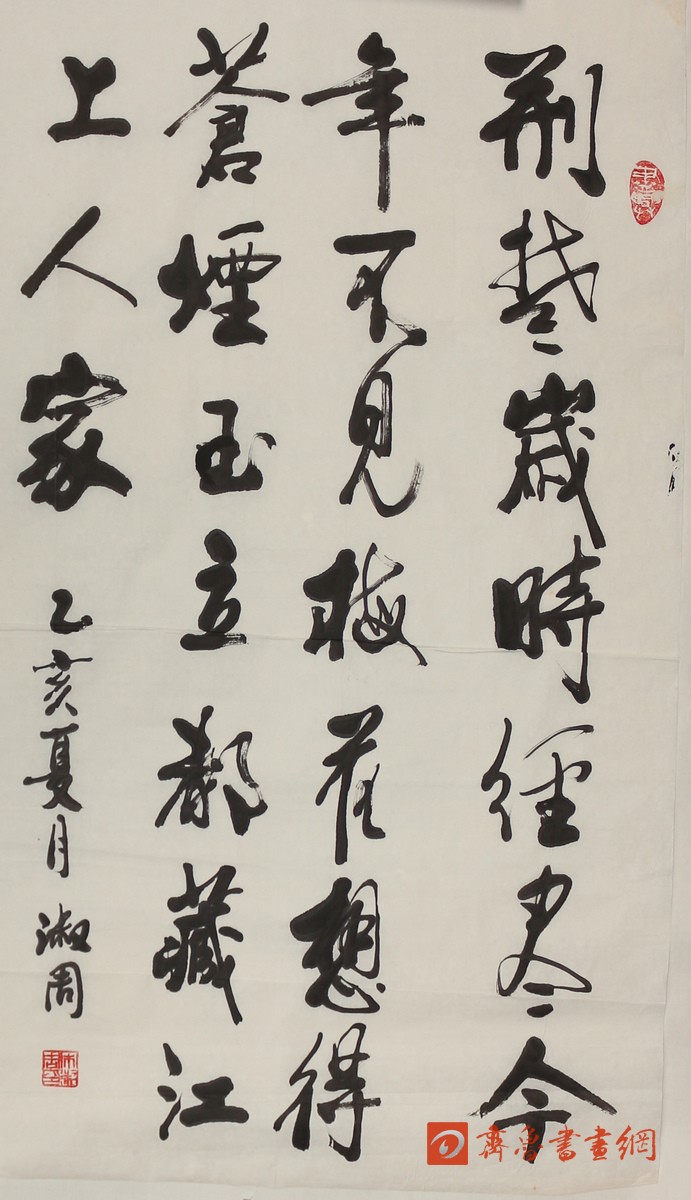 荆楚歲時經尽今
年不見梅花想得
蒼煙玉立都藏江
上人家
乙亥夏月 淑周
齊魯書畫網